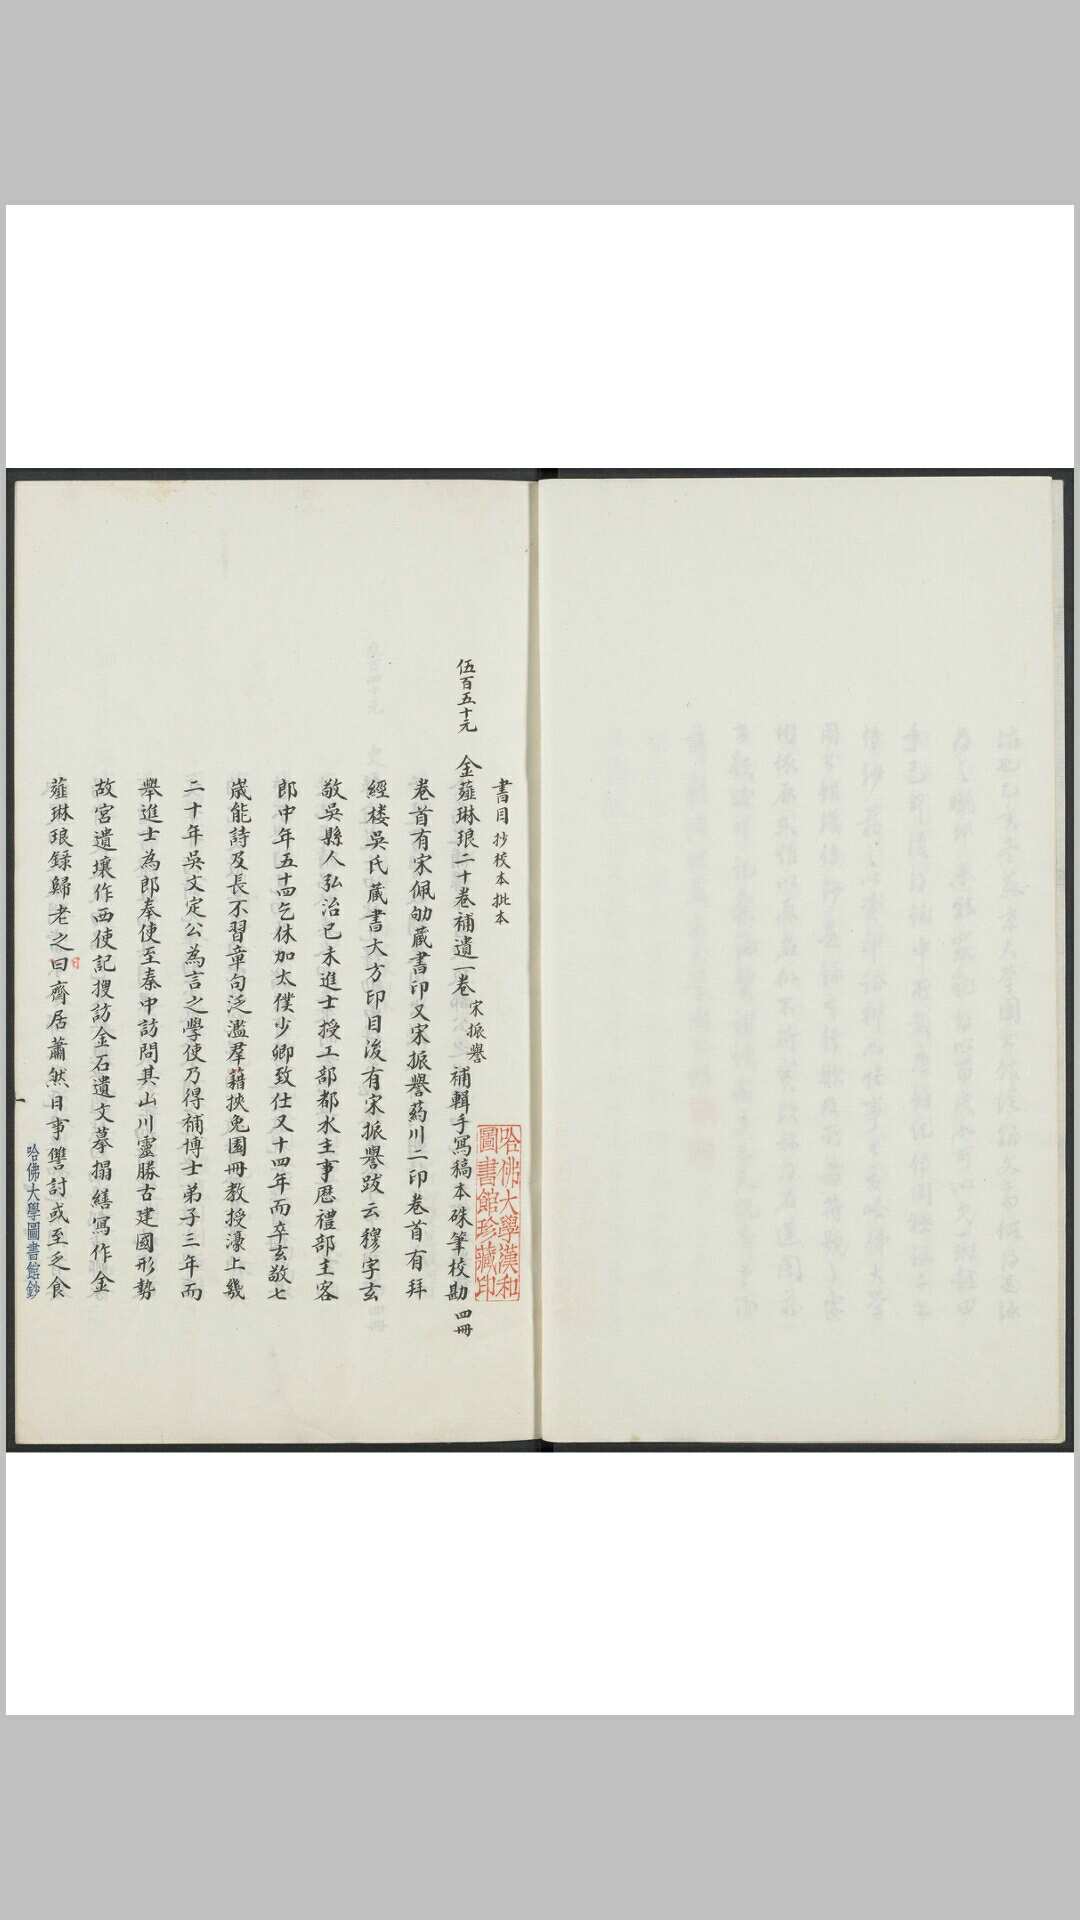 書目抄校本批本
伍百五十元 金薤琳琅二十卷補遺一卷 宋振譽 補輯手寫稿本硃筆校勘 四冊
卷首有宋佩劬藏書印又宋振譽葯川二印卷首有拜
經楼吳氏藏書大方印目後有宋振譽跋云穆字玄
敬吳縣人弘治己未進士授工部都水主事歷禮部主客
郎中年五十四乞休加太僕少卿致仕又十四年而卒玄敬七
歲能詩及長不習章句泛濫羣籍挾兔園冊教授濠上幾
二十年吳文定公為言之學使乃得補博士弟子三年而
舉進士為郎奉使至秦中訪問其山川靈勝古建國形勢
故宮遺壤作西使記搜訪金石遺文摹搨繕寫作金
薤琳琅錄歸老之曰日齋居蕭然日事讐討或至乏食
一
哈佛大學圖書館鈔
哈佛大學漢和
圖書館珍藏印